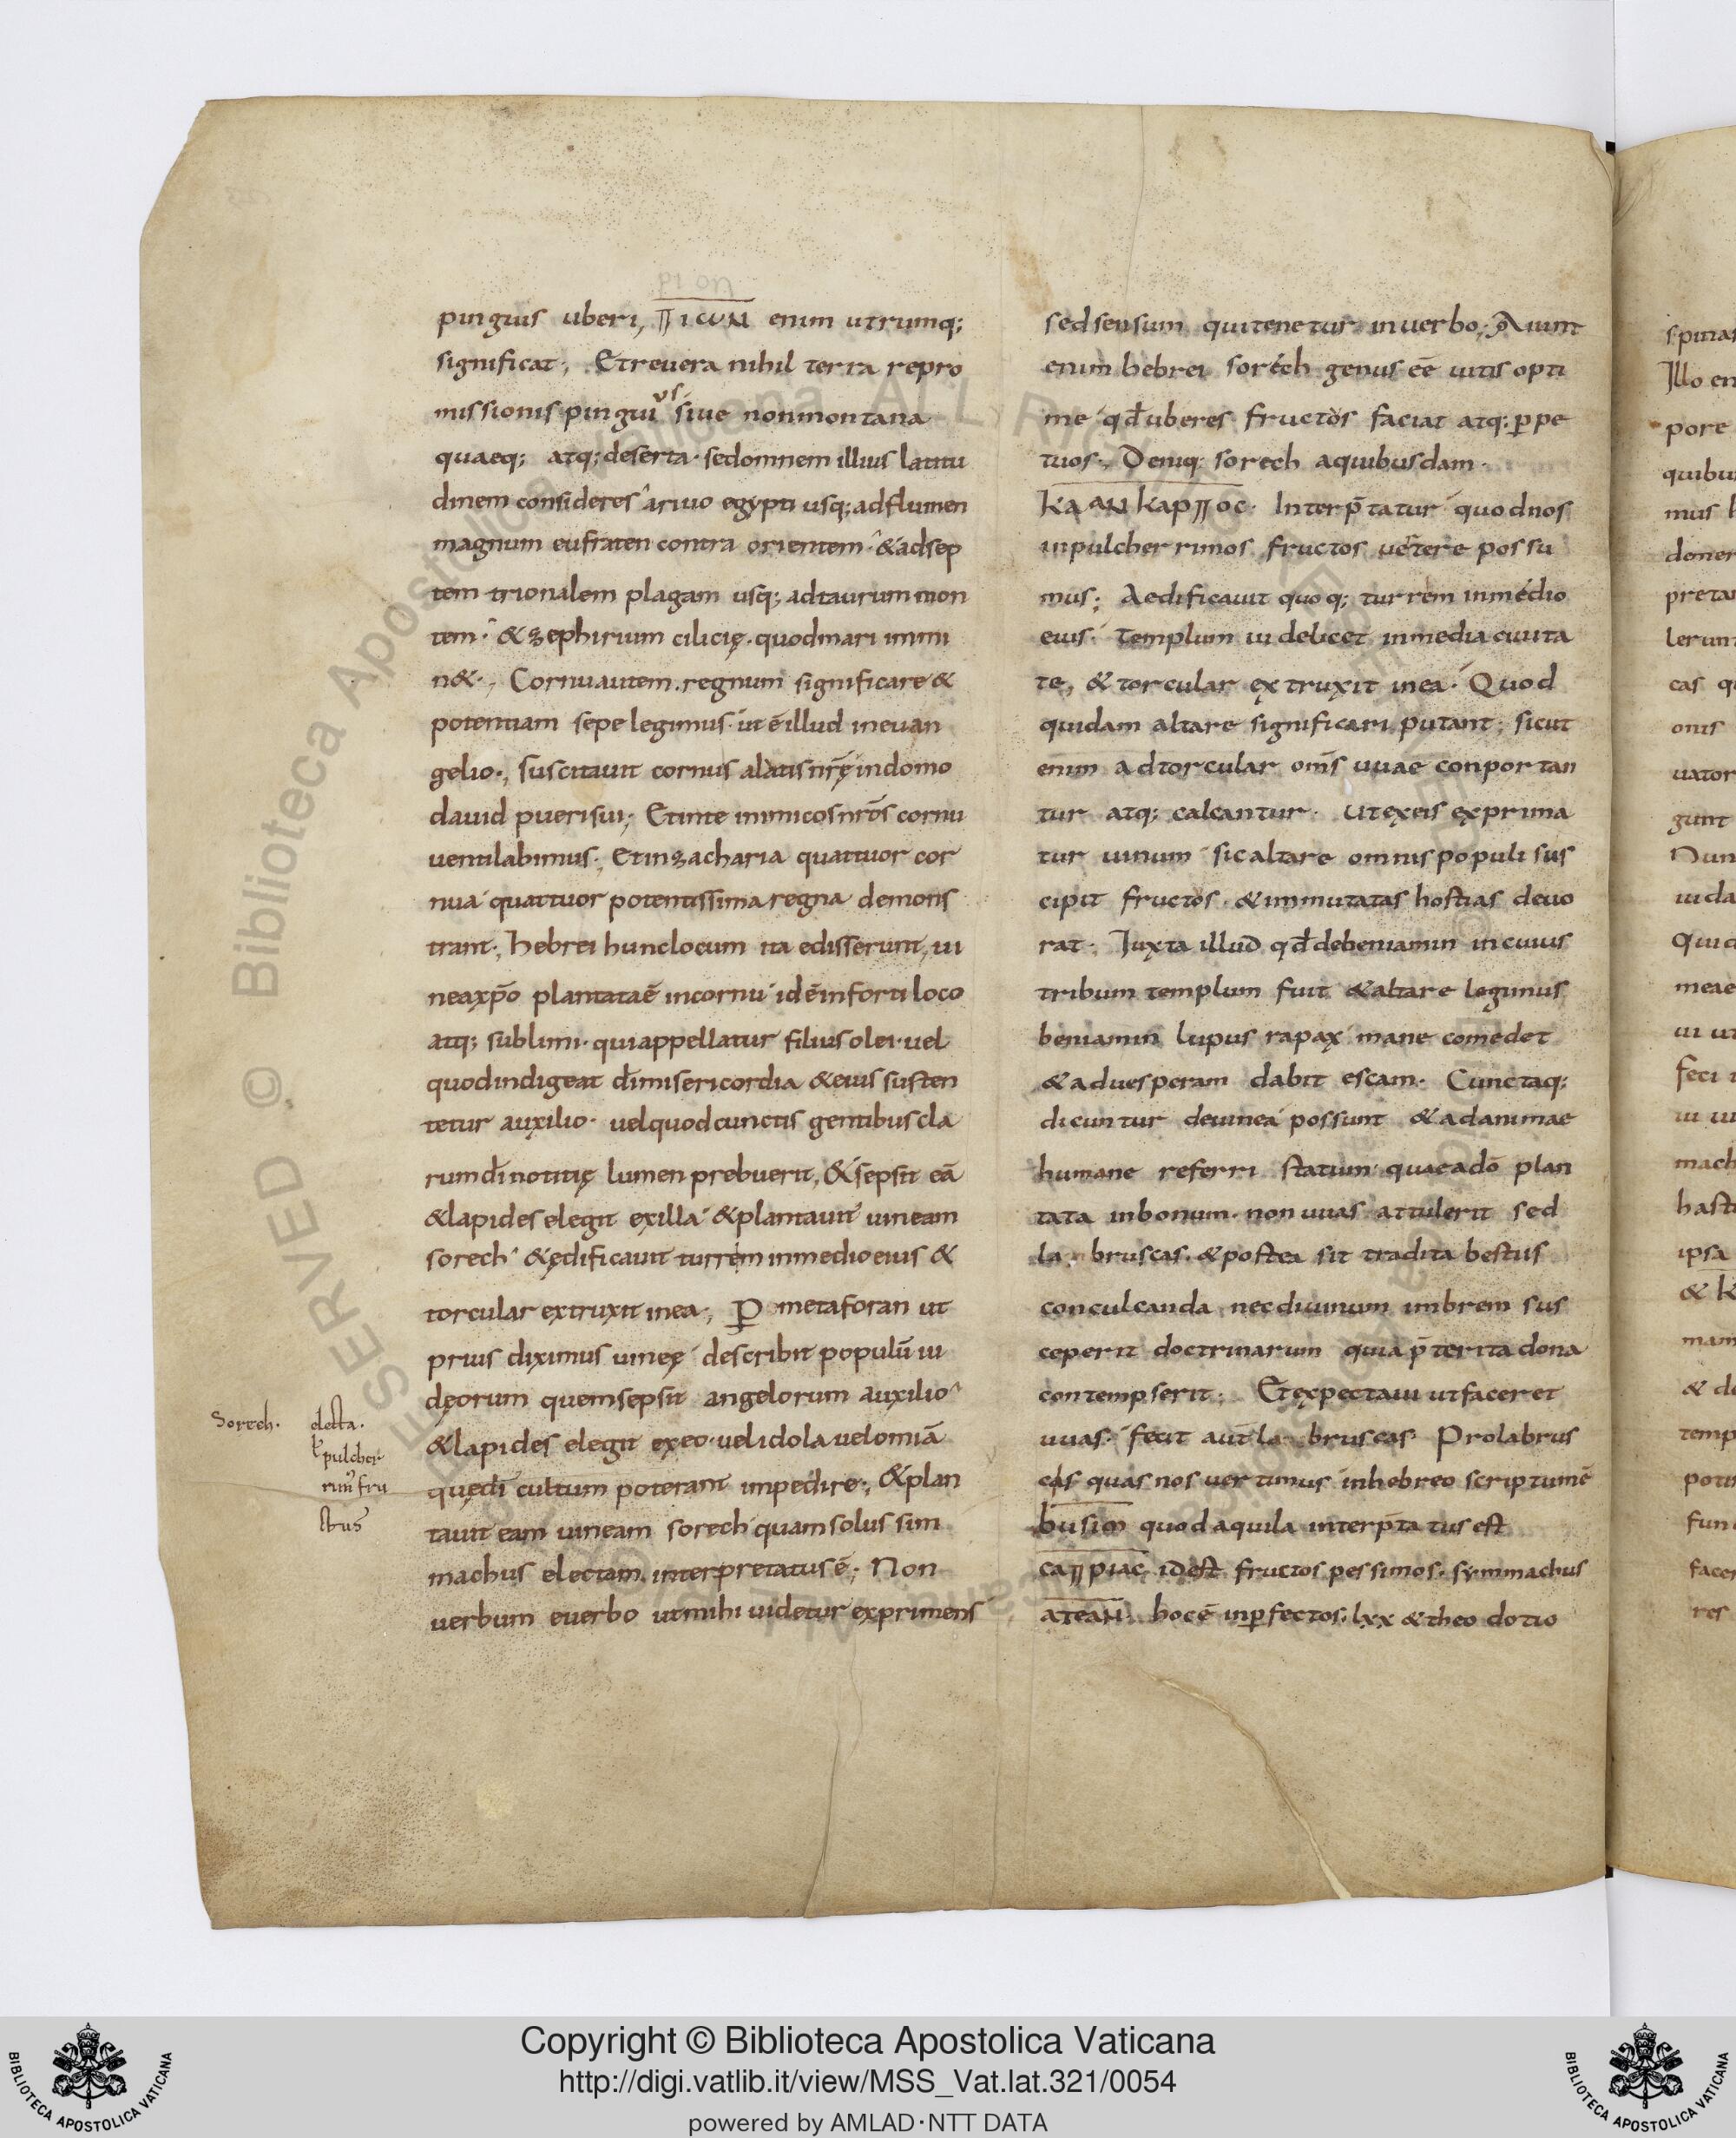 pi on
pinguis uberi, ΠΙωΝ enim utrumq;
significat; Et reuera nihil terra repro
missionis pinguius siue non montana
quaeq; atq; deserta· sed omnem illius latitu
dinem consideres a riuo egypti usq; ad flumen
magnum eufraten contra orientem· & ad sep
tem trionalem plagam usq; ad taurum mon
tem· & zephirium cilicię· quod mari immi
n&·, Cornu autem regnum significare &
potentiam sepe legimus· ut ē illud in euan
gelio·, suscitauit cornus alatis nr̄ę in domo
dauid pueri sui; Et in te inimicos nr̄os cornu
uentilabimus; Et in zacharia quattuor cor
nua quattuor potentissima regna demons
trant; hebrei hunc locum ita edisserunt, ui
nea xp̄o plantata ē in cornu id ē in forti loco
atq; sublimi· qui appellatur filius olei· uel
quod indigeat d̄i misericordia & eius susten
tetur auxilio· uel quod cunctis gentibus cla
rum d̄i notitię lumen prebuerit, & sepsit eā
& lapides elegit ex illa & plantauit uineam
sorech & ędificauit turrem in medio eius &
torcular extruxit in ea·, P̲ metaforan ut
prius diximus uineę describit populū iu
dęorum quem sepsit angelorum auxilio
& lapides elegit ex eo· uel idola uel om̄ia
quę d̄i cultum poterant impedire·, & plan
tauit eam uineam sorech quam solus sim
machus electam interpretatus ē; Non
uerbum e uerbo ut mihi uidetur exprimens
Sorech· electa·
ł pulcher
rim' fru
ctus
sed sensum qui tenetur in uerbo; Aiunt
enim hebrei sorech genus eē uitis opti
me qđ uberes fructos faciat atq; p̲pe
tuos·, Deniq; sorech a quibusdam·
Kaλλικαρπος· Interp̄tatur quod nos
in pulcherrimos fructos uertere possu
mus; Aedificauit quoq; turrem in medio
eius· Templum uidelicet in media ciuita
te, & torcular extruxit in ea· Quod
quidam altare significari putant; sicut
enim ad torcular om̄s uuae conportan
tur atq; calcantur· Ut ex eis exprima
tur uinum sic altare omnis populi sus
cipit fructos· & immutatas hostias deuo
rat· Iuxta illud qđ de beniamin in cuius
tribum templum fuit & altare legimus
beniamin lupus rapax mane comedet
& ad uesperam dabit escam· Cunctaq;
dicuntur de uinea possunt & ad animae
humane referri statum quae a d̄o plan
tata in bonum· non uuas attulerit sed
la bruscas· & postea sit tradita bestiis
conculcanda nec diuinum imbrem sus
ceperit doctrinarum quia p̄terita dona
contempserit; Et expectaui ut faceret
uuas· fecit aūt labruscas· Pro labrus
cas quas nos uertimus in hebreo scriptum ē
busim quod aquila interp̄tatus est
caπpiac id est fructos pessimos· symmachus
ateaN hoc ē inp̲fectos; lxx & theodotio